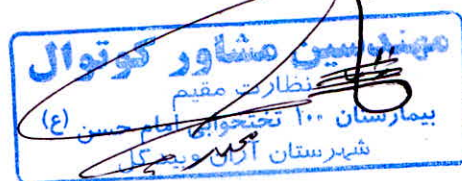 مهندسین مشاور گوتوال
نظارت مقیم
بیمارستان ۱۰۰ تختخوابی امام حسن (ع)
شهرستان آران وبیدگل